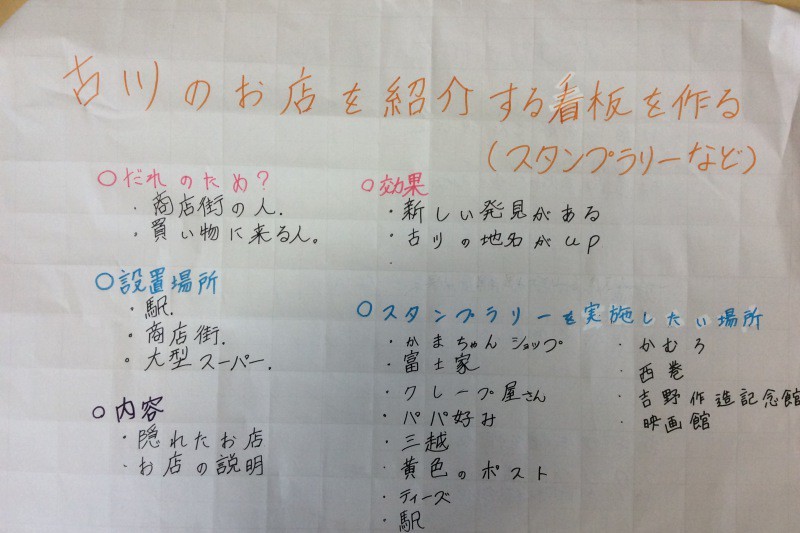 古川のお店を紹介する看板を作る
(スタンプラリーなど)
○だれのため?
・商店街の人.
・買い物に来る人。
○設置場所
・駅.
・商店街.
・大型スーパー.
○内容
・隠れたお店
・お店の説明
○効果
・新しい発見がある
・古川の地名がup
・
○スタンプラリーを実施したい場所
・かまちゃんショップ
・富士家
・クレープ屋さん
・パパ好み
・三越
・黄色のポスト
・ティーズ
・駅
・かむろ
・西巻
・吉野作造記念館
・映画館